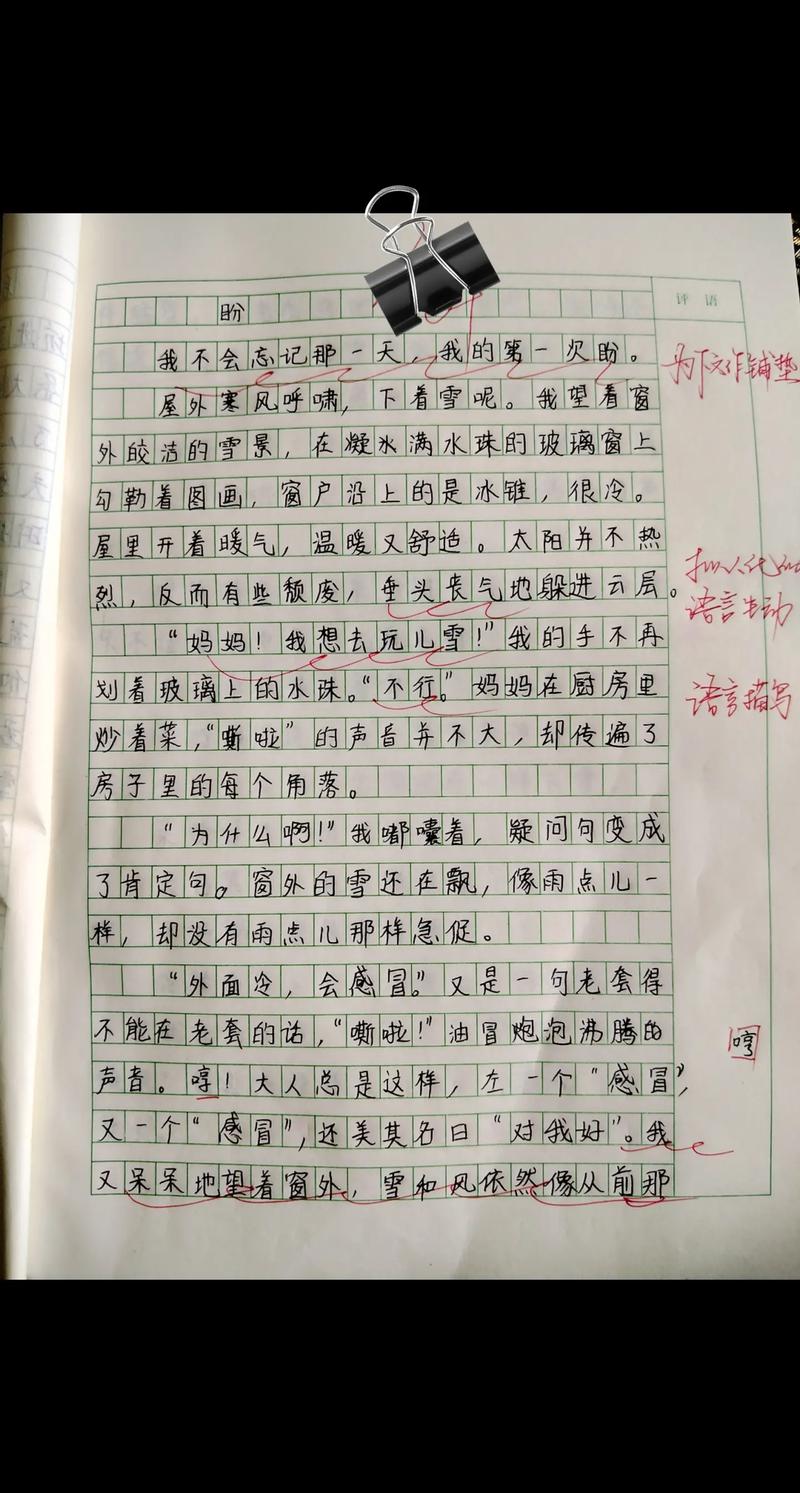 评语
盼
我不会忘记那一天，我的第一次盼。
为下文作铺垫
屋外寒风呼啸，下着雪呢。我望着窗
外皎洁的雪景，在凝水满水珠的玻璃窗上
勾勒着图画，窗户沿上的是冰锥，很冷。
屋里开着暖气，温暖又舒适。太阳并不热
烈，反而有些颓废，垂头丧气地躲进云层。
拟人化的
语言生动
“妈妈！我想去玩儿雪！”我的手不再
划着玻璃上的水珠。“不行。”妈妈在厨房里
语言描写
炒着菜，“嘶啦”的声音并不大，却传遍了
房子里的每个角落。
“为什么啊！”我嘟囔着，疑问句变成
了肯定句。窗外的雪还在飘，像雨点儿一
样，却没有雨点儿那样急促。
“外面冷，会感冒。”又是一句老套得
不能在老套的话，“嘶啦！”油冒炮泡沸腾的
哼
声音。哼！大人总是这样，左一个“感冒”，
又一个“感冒”，还美其名曰“对我好”。我
又呆呆地望着窗外，雪和风依然像从前那